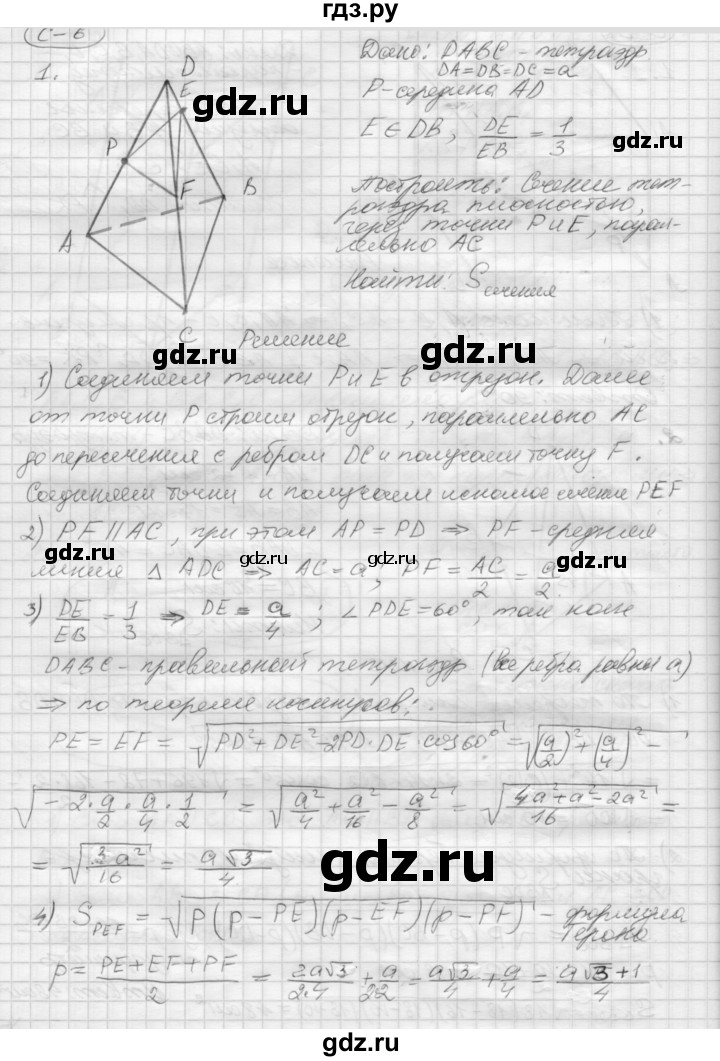 гдз.ру
С-6
1.
Дано: DABC - тетраэдр
DA=DB=DC=a
P-середина AD
E ∈ DB, DE/EB = 1/3
Построить: Сечение тет-
раэдра плоскостью,
через точки P и E, парал-
лельно AC
Найти: Sсечения
D
E
P
F
B
A
C
gdz.ru
gdz.ru
gdz.ru
gdz.ru
Решение
1) Соединяем точки P и E в отрезок. Далее
от точки P строим отрезок, параллельно AC
до пересечения с ребром DC и получаем точку F.
Соединяем точки и получаем искомое сечение PEF
2) PF || AC, при этом AP = PD ⇒ PF - средняя
линия △ ADC ⇒ AC = a, PF = AC/2 = a/2
3) DE/EB = 1/3 ⇒ DE = a/4; ∠PDE = 60°, так как
DABC - правильный тетраэдр (все ребра равны a)
⇒ по теореме косинусов:
PE = EF = √(PD² + DE² - 2PD · DE · cos60°) = √((a/2)² + (a/4)² -
√(- 2 · a/2 · a/4 · 1/2) = √(a²/4 + a²/16 - a²/8) = √((4a² + a² - 2a²)/16) =
= √(3a²/16) = a√3/4
4) S_PEF = √(P(p-PE)(p-EF)(p-PF)) - формула
Герона
p = (PE+EF+PF)/2 = 2a√3/2·4 + a/22 = a√3/4 + a/4 = a√3+1/4
gdz.ru
gdz.ru
gdz.ru
gdz.ru
gdz.ru
gdz.ru
gdz.ru
gdz.ru
gdz.ru
gdz.ru
гдз.ру